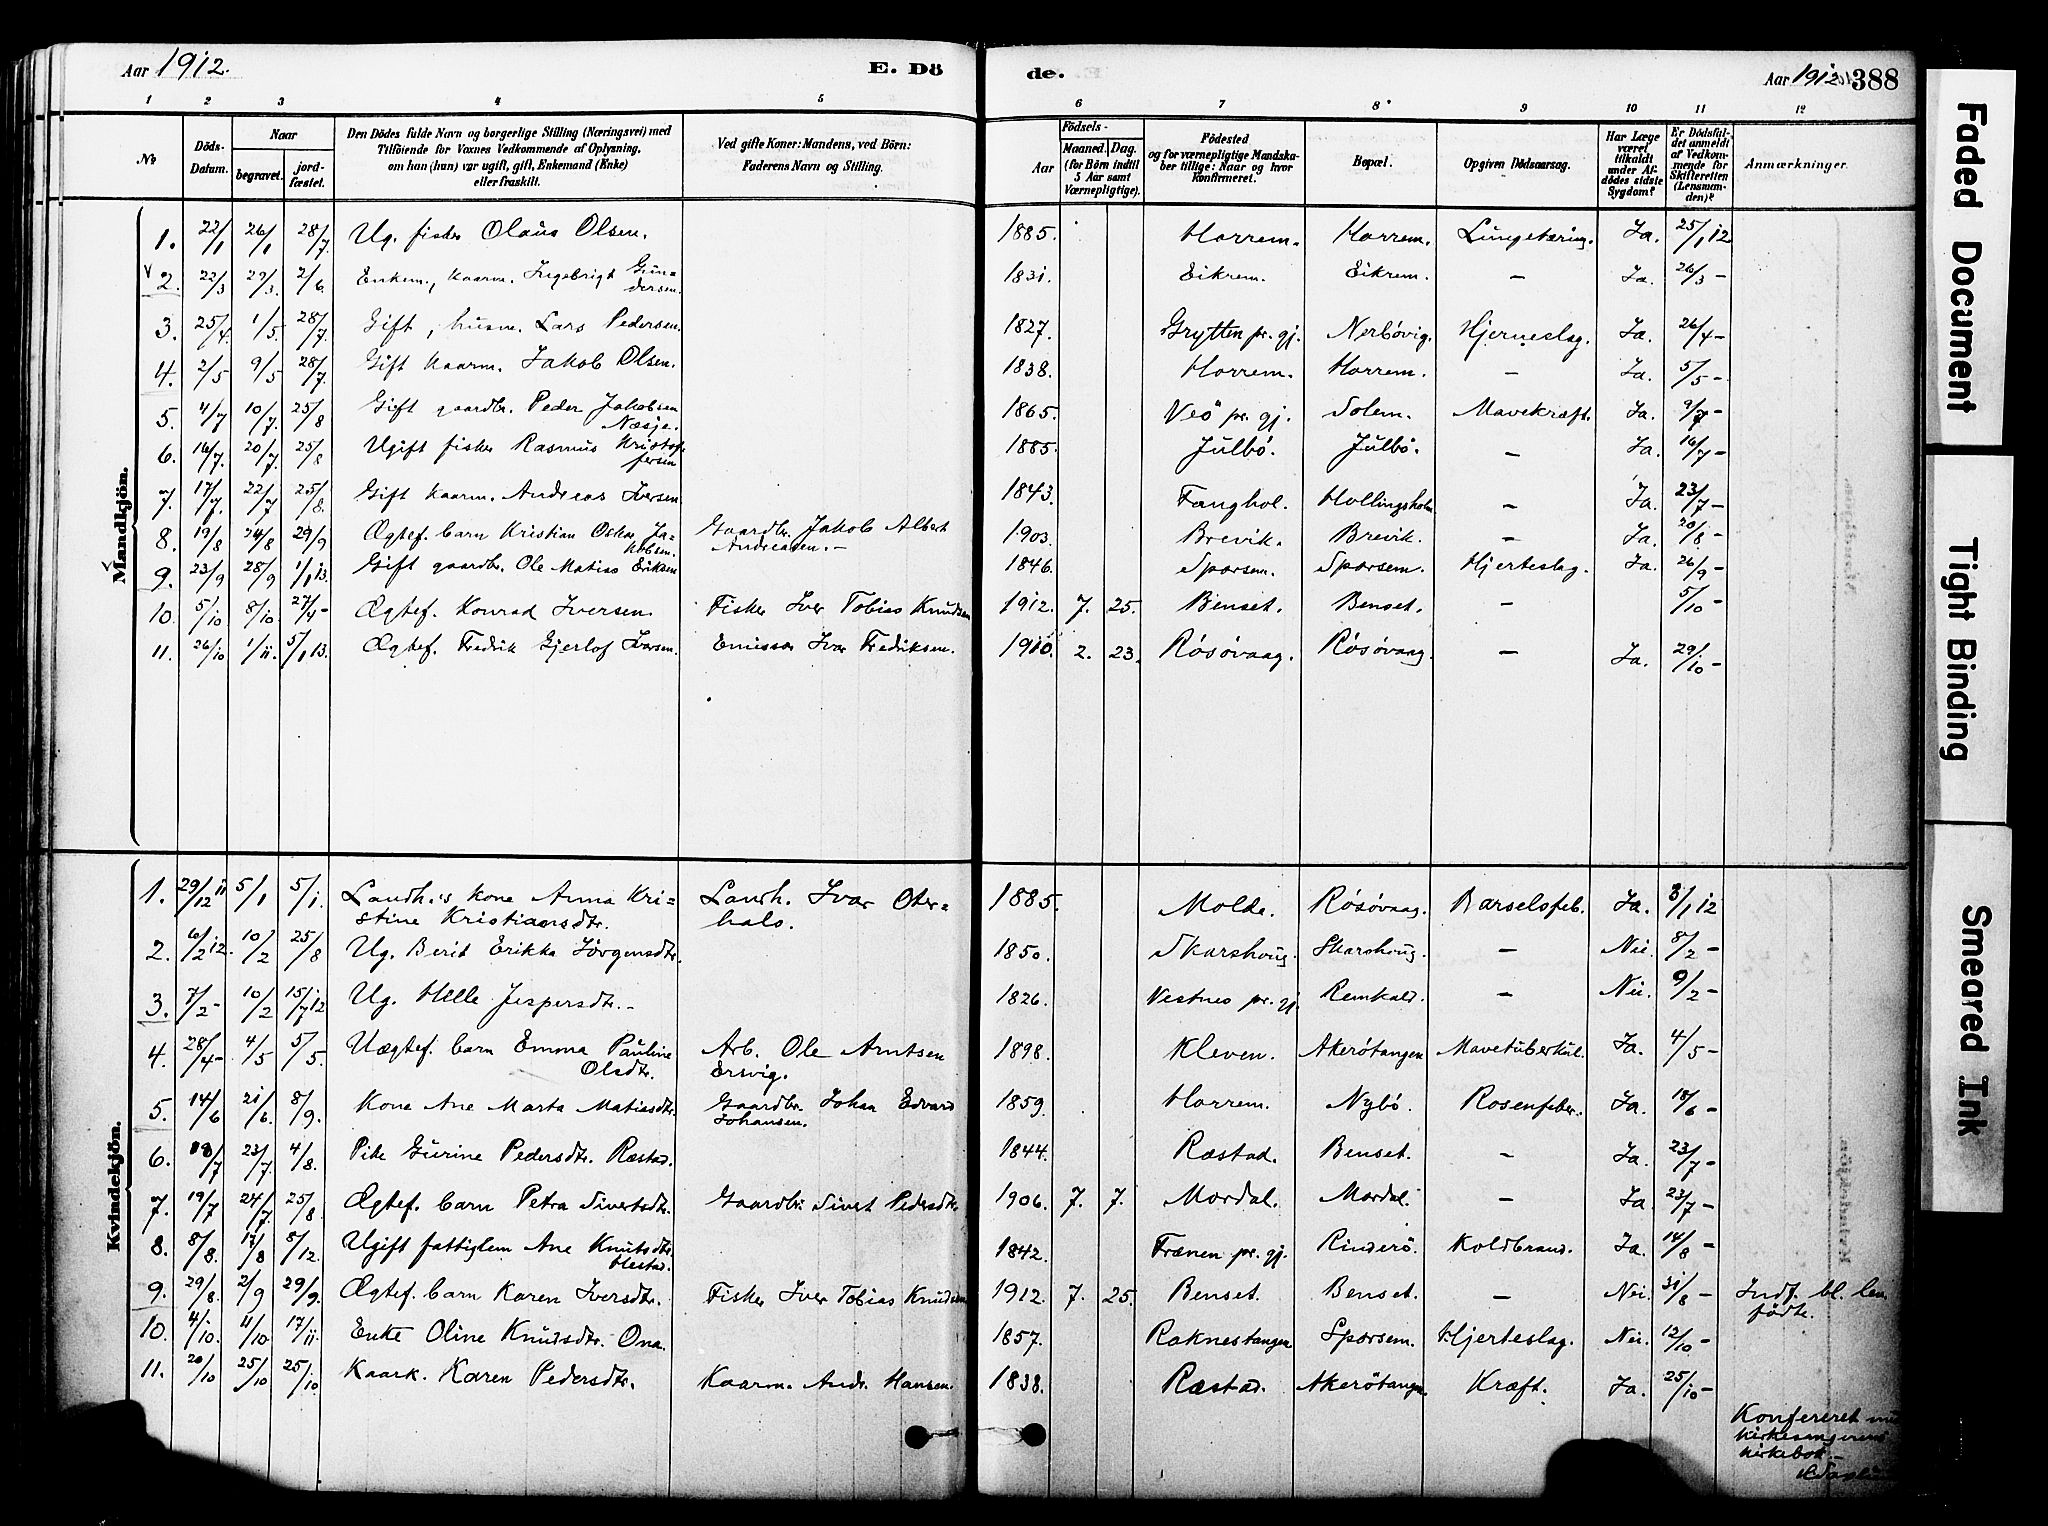 Aar 1912.
E. Dö
de.
Aar 1912.
388
1 2 3 4 5 6 7 8 9 10 11 12
No
Döds-Datum.
Naar
begravet.
jord-fæstet.
Den Dödes fulde Navn og borgerlige Stilling (Næringsvei) med
Tilföiende for Voxnes Vedkommende af Oplysning,
om han (hun) var ugift, gift, Enkemand (Enke)
eller fraskilt.
Ved gifte Koner: Mandens, ved Börn:
Faderens Navn og Stilling.
Födsels-
Aar
Maaned. Dag.
(for Börn indtil
5 Aar samt
Værnepligtige).
Födested
og for værnepligtige Mandska-
ber tillige: Naar og hvor
konfirmeret.
Bopæl.
Opgiven Dödsaarsag.
Har Læge
været
tilkaldt
under Af-
dödes sidste
Sygdom?
Er Dödsfal-
det anmeldt
af Vedkom-
mende for
Skifteretten
(Lensman-
den)?
Anmærkninger.
Mandkjön.
1. 22/1 26/1 28/7 Ug. fisker Olaus Olsen. 1885. Harrem. Harrem. Lungetæring. Ja. 25/1 12.
2. 22/3 29/3 2/6 Enkem., kaarm. Ingebrigt Gun-
dersen. 1831. Eikrem. Eikrem. – Ja. 26/3 –
3. 25/4 1/5 28/7 Gift, husm. Lars Pedersen. 1827. Grytten pr. gj. Nerbövig. Hjerneslag. Ja. 26/4 –
4. 2/5 9/5 28/7 Gift kaarm. Jakob Olsen. 1838. Harrem. Harrem. – Ja. 5/5 –
5. 4/7 10/7 25/8 Gift gaardbr. Peder Jakobsen
Næsje. 1865. Veö pr. gj. Solem. Mavekræft. Ja. 9/7 –
6. 16/7 20/7 25/8 Ugift fisker Rasmus Kristof-
fersen 1885. Julbö. Julbö. – Ja. 16/7 –
7. 17/7 22/7 25/8 Gift kaarm. Andreas Iversen 1843. Fanghol. Hollingsholm – Ja. 23/7 –
8. 19/8 24/8 29/9 Ægtef. barn Kristian Oskar Ja-
kobsen. Gaardbr. Jakob Albert
Andreasen. – 1903. Brevik. Brevik. – Ja. 20/8 –
9. 23/9 28/9 1/1 13. Gift gaardbr. Ole Matias Eriksen 1846. Sporsem. Sporsem. Hjerteslag. Ja. 26/9 –
10. 5/10 8/10 27/4 – Ægtef. Konrad Iversen. Fisker Iver Tobias Knudsen 1912. 7. 25. Benset. Benset. – 5/10 –
11. 26/10 1/11. 5/1 13. Ægtef. Fredrik Gjerlof Iversen. Emissær Ivar Fredriksen. 1910. 2. 23. Rösövaag. Rösövaag. – Ja. 29/10 –
Kvindekjön.
1. 29/12 11 5/1 5/1. Landh.s kone Anna Kri-
stine Kristiansdtr. Landh. Ivar Oter-
hals. 1885. Molde. Rösövaag. Barselsfeb. Ja. 3/1 12
2. 6/2 12. 10/2 25/8 Ug. Berit Erikka Jörgensdtr. 1850. Skarshoug. Skarshoug. – Nei. 8/2 –
3. 7/2 – 10/2 15/7 12 Ug. Helle Jespersdtr. – 1826. Vestnes pr. gj. Remkald. – Nei. 9/2 –
4. 28/4 – 4/5 5/5. Uægtef. barn Emma Pauline
Olsdtr. Arb. Ole Arntsen
Ersvig. 1898. Kleven. Akerötangen Mavetuberkul. Ja. 4/5 –
5. 14/6 21/6 8/9. Kone Ane Marta Matiasdtr. Gaardbr. Johan Edvard
Johansen. 1859. Harrem. Nybö. Rosenfeber. Ja. 18/6 –
6. 18/7 23/7 4/8. Pike Gurine Pedersdtr. Ræstad. 1844. Ræstad. Benset. – Ja. 23/7 –
7. 19/7 24/7 25/8. Ægtef. barn Petra Sivertsdtr. Gaardbr. Sivert Pedersdtr. 1906. 7. 7. Mordal. Mordal. – Ja 23/7 –
8. 8/8. 17/8 8/12. Ugift fattiglem Ane Knutsdtr.
Hestad. 1842. Frænen pr. gj. Rinderö. Koldbrand. Ja. 14/8 –
9. 29/8. 2/9 29/9. Ægtef. barn Karen Iversdtr. Fisker Iver Tobias Knudsen 1912. 7. 25. Benset. Benset. – Nei. 31/8 – Indf. bl. lev.
födte.
10. 4/10. 11/10 17/11 Enke Oline Knudsdtr. Ona. 1857. Raknestangen Sporsem. Hjerteslag. Nei. 12/10 –
11. 20/10 25/10 25/10 Kaark. Karen Pedersdtr. Kaarm. Andr. Hansen. 1838. Ræstad. Akerötangen. Kræft. Ja. 25/10 –
Konfereret med
kirkesangerens
kirkebok. –
Faded Document
Tight Binding
Smeared Ink